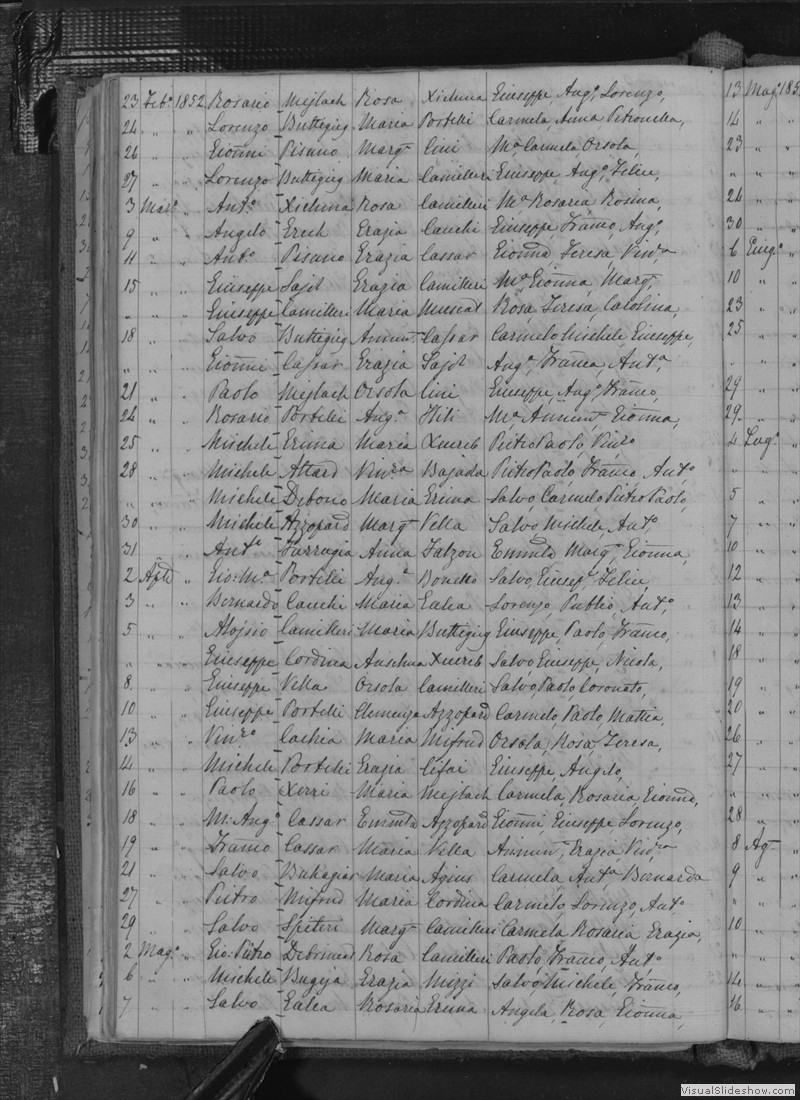 23 Feb.º 1852 Rosario Mejlach Rosa Xicluna Giuseppe, Ang.º, Lorenzo, 13 Mag.º 185
24 " " Lorenzo Buttigieg Maria Portelli Carmela, Anna Petronilla, 14 "
26 " " Gionni Pisano Marg.ta Cini M.a Carmela Orsola, 23 " "
27 " " Lorenzo Buttigieg Maria Camilleri Giuseppe, Ang.º, Felice, " " "
3 Mar.º " Ant.º Xicluna Rosa Camilleri M.a Rosaria Rosina, 24 " "
9 " " Angelo Grech Grazia Cauchi Giuseppe, Franco, Ang.º, 30 " "
11 " " Ant.º Pisano Grazia Cassar Gionna Teresa Vin.ra 6 Giug.º "
15 " " Giuseppe Sajd Grazia Camilleri M.a Gionna, Marg.ta, 10 " "
" " " Giuseppe Camilleri Maria Muscat Rosa, Teresa, Carolina, 23 " "
18 " " Salvo Buttigieg Annun.ta Cassar Carmelo Michele, Giuseppe, 25 " "
" " " Gionni Cassar Grazia Sajd Ang.a, Franca, Ant.a " " "
21 " " Paolo Mejlach Orsola Cini Giuseppe, Ang.º, Franco, 29 " "
24 " " Rosario Portelli Ang.a Hili M.a Annun.ta Gionna, 29 " "
25 " " Michele Grima Maria Xuereb Pietro Paolo, Vin.zo 4 Lug.º "
28 " " Michele Attard Vin.za Bajada Pietro Paolo, Franco, Ant.º " " "
" " " Michele Debono Maria Grima Salvo Carmelo Pietro Paolo, 5 " "
30 " " Michele Azzopard Marg.ta Vella Salvo Michele, Ant.º, 7 " "
31 " " Ant.º Farrugia Anna Falzon Emmla Marg.ta, Gionna, 10 " "
2 Aple " Gio: M.a Portelli Ang.a Bonello Salvo, Giusep.e, Felice, 12 " "
3 " " Bernardo Cauchi Maria Galea Lorenzo, Publio, Ant.º, 13 " "
5 " " Alojsio Camilleri Maria Buttigieg Giuseppe, Paolo, Franco, 14 " "
" " " Giuseppe Cordina Anselma Xuereb Salvo Giuseppe, Nicola, 18 " "
8. " " Giuseppe Vella Orsola Camilleri Salvo Paolo Coronato, 19 " "
10 " " Giuseppe Portelli Clemenza Azzopard Carmelo Paolo, Mattia, 20 " "
13 " " Vin.zo Cachia Maria Mifsud Orsola, Rosa, Teresa, 26 " "
14 " " Michele Portelli Grazia Cifai Giuseppe, Angelo, 27 " "
16 " " Paolo Xirri Maria Mejlach Carmela, Rosaria, Gionna, " " "
18 " " M: Ang.º Cassar Emmla Azzopard Gionni, Giuseppe, Lorenzo, 28 " "
19 " " Franco Cassar Maria Vella Annun.ta, Grazia, Vin.za 8 Ag.to "
21 " " Salvo Buhagiar Maria Agius Carmela, Ant.a, Bernarda 9 " "
27 " " Pietro Mifsud Maria Cordina Carmelo, Lorenzo, Ant.º " " "
29 " " Salvo Spiteri Marg.ta Camilleri Carmela Rosaria Grazia, 10 " "
2 Mag.º " Gio: Pietro Debrincat Rosa Camilleri Paolo, Franco, Ant.º, " " "
6 " " Michele Bugeja Grazia Mizzi Salvo Michele, Franco, 14 " "
7 " " Salvo Galea Rosaria Grima Angela, Rosa, Gionna, 16 " "
VisualSlideshow.com